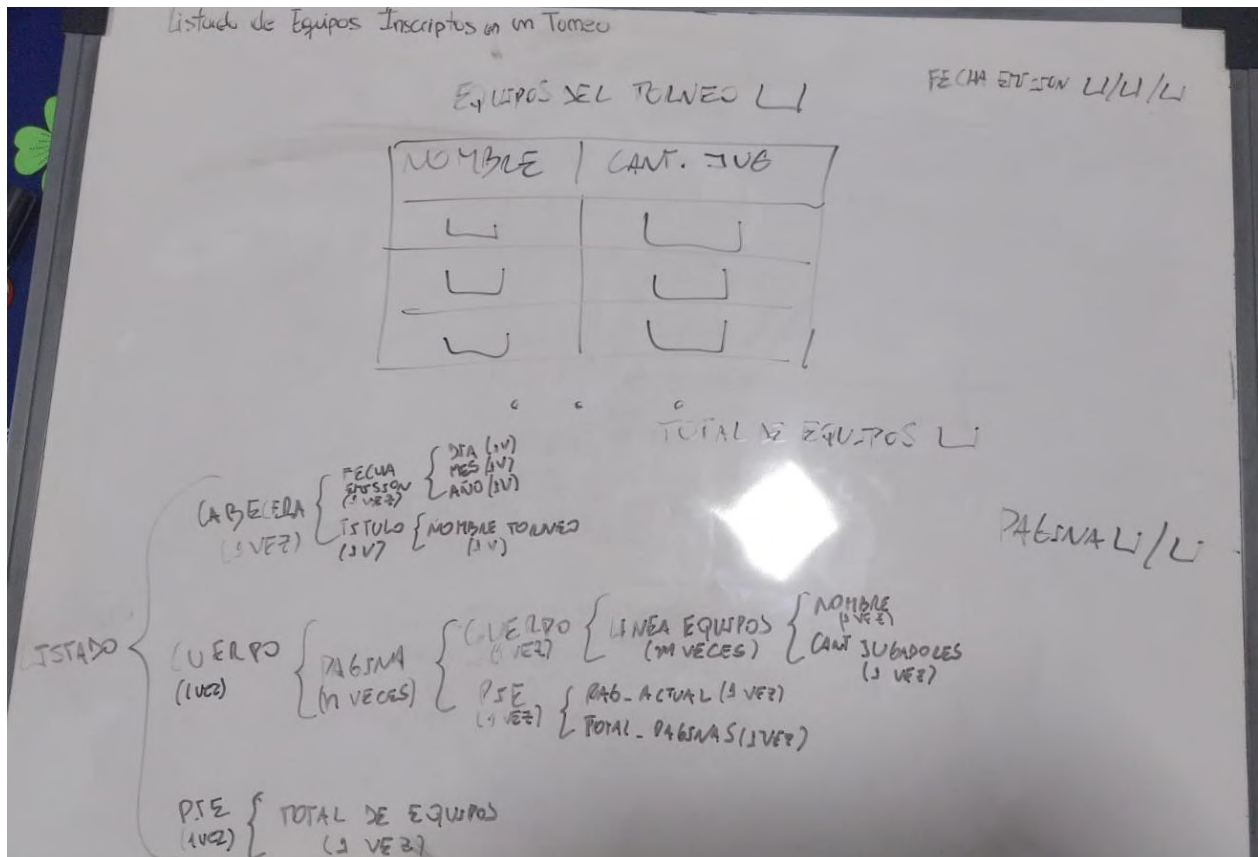 Listado de Equipos Inscriptos en un Torneo
EQUIPOS DEL TORNEO
FECHA EMISION / /
NOMBRE CANT. JUG
TOTAL DE EQUIPOS
PAGINA /
LISTADO
CABECERA
(1 VEZ)
FECHA
EMISION
(1 VEZ)
DIA (1V)
MES (1V)
AÑO (1V)
TITULO
(1V)
NOMBRE TORNEO
(1V)
CUERPO
(1 VEZ)
PAGINA
(N VECES)
CUERPO
(1 VEZ)
LINEA EQUIPOS
(M VECES)
NOMBRE
(1 VEZ)
CANT JUGADORES
(1 VEZ)
PIE
(1 VEZ)
PAG_ACTUAL (1 VEZ)
TOTAL_PAGINAS (1 VEZ)
PIE
(1 VEZ)
TOTAL DE EQUIPOS
(1 VEZ)